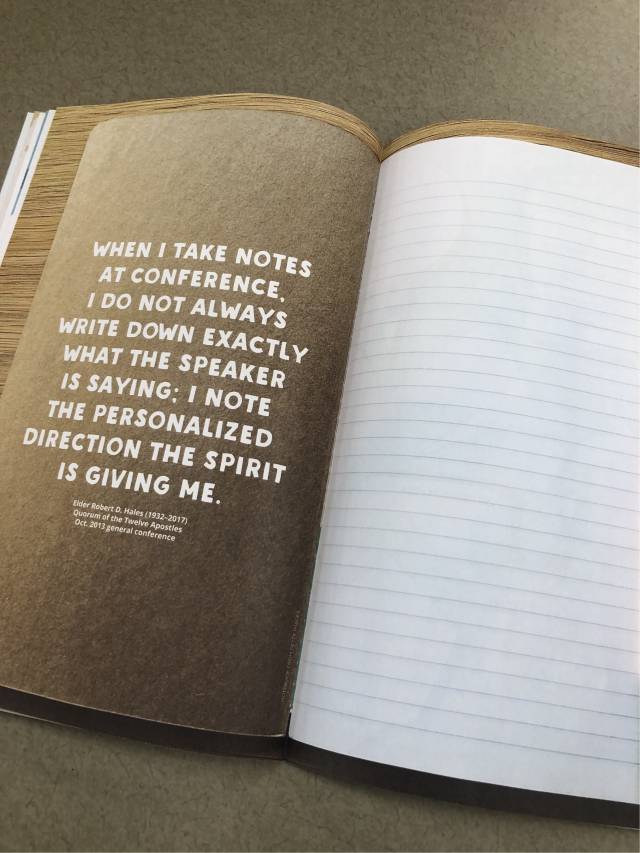 WHEN I TAKE NOTES
AT CONFERENCE,
I DO NOT ALWAYS
WRITE DOWN EXACTLY
WHAT THE SPEAKER
IS SAYING; I NOTE
THE PERSONALIZED
DIRECTION THE SPIRIT
IS GIVING ME.
Elder Robert D. Hales (1932–2017)
Quorum of the Twelve Apostles
Oct. 2013 general conference